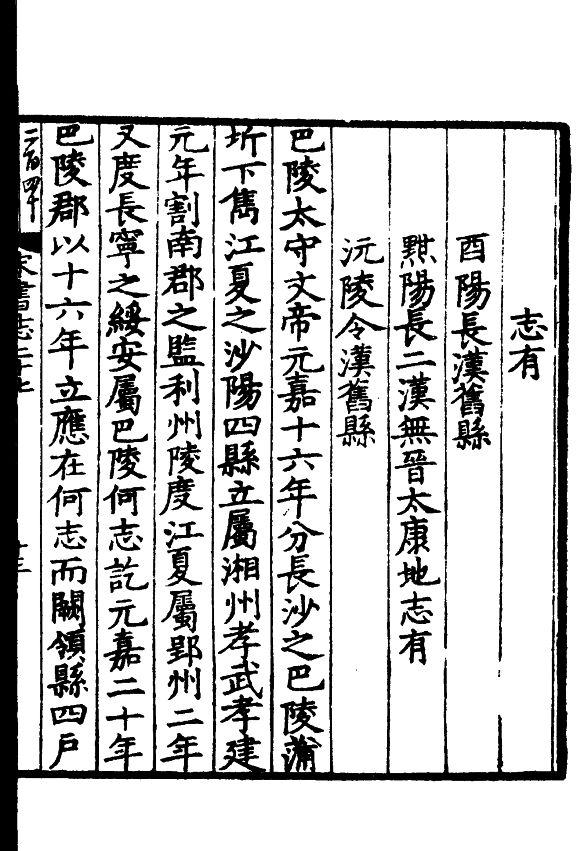 志有
酉陽長漢舊縣
黚陽長二漢無晉太康地志有
沅陵令漢舊縣
巴陵太守文帝元嘉十六年分長沙之巴陵蒲
圻下雋江夏之沙陽四縣立屬湘州孝武孝建
元年割南郡之監利州陵度江夏屬郢州二年
又度長寧之綏安屬巴陵何志訖元嘉二十年
巴陵郡以十六年立應在何志而闕領縣四戶
二百四十
宋書志二十七
十三